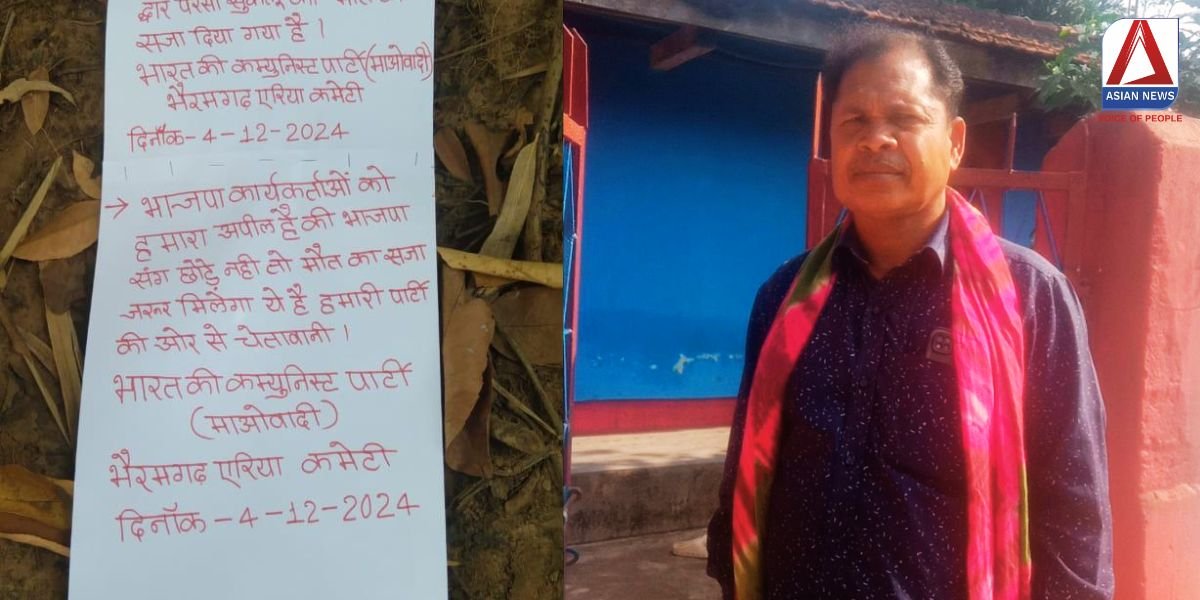 सजा दिया गया है ।
भारत की कम्युनिस्ट पार्टी (माओवादी)
भैरमगढ़ एरिया कमेटी
दिनाँक - 4 - 12 - 2024
→ भाजपा कार्यकर्ताओं को
हमारा अपील है की भाजपा
संग छोड़े नही तो मौत का सजा
जरूर मिलेगा ये है हमारी पार्टी
की ओर से चेतावानी ।
भारत की कम्युनिस्ट पार्टी
(माओवादी)
भैरमगढ एरिया कमेटी
दिनाँक - 4 - 12 - 2024
ASIAN NEWS
VOICE OF PEOPLE